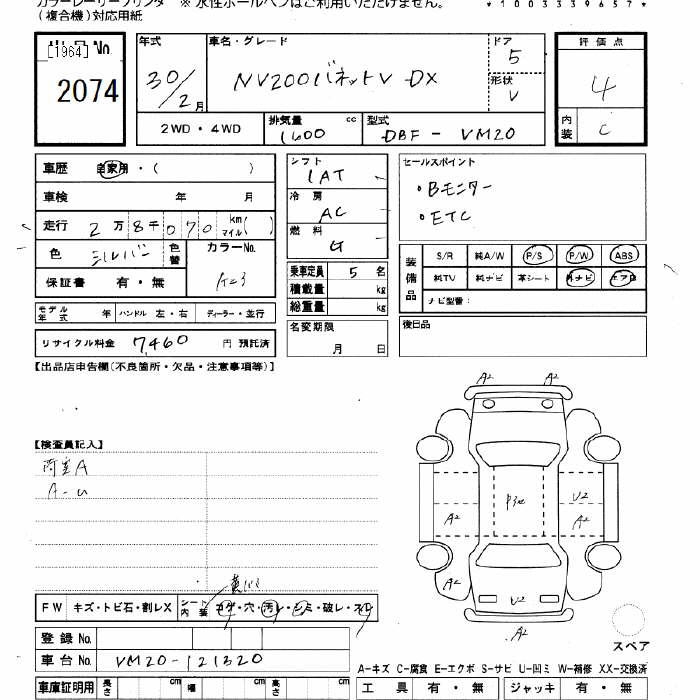 カラーレーザープリンタ ※ 水性ボールペンはご利用いただけません。
(複合機)対応用紙
*1003339657*
[1964] No
2074
年式 30/2月
車名・グレード NV200バネットV DX
ドア 5
形状 V
評価点 4
内装 C
2WD・4WD
排気量 1600 cc
型式 DBF-VM20
車歴 自家用・( )
車検 年 月
走行 2万8千070 km マイル( )
色 シルバー 色替 カラーNo. K23
保証書 有・無
モデル年式 年 ハンドル 左・右 ディーラー・並行
リサイクル料金 7,460 円 預託済
シフト IAT
冷房 AC
燃料 G
乗車定員 5 名
積載量 kg
総重量 kg
名変期限 月 日
セールスポイント
・Bモニター
・ETC
装備品 S/R 純A/W P/S P/W ABS
純TV 純ナビ 革シート 外ナビ エアB
ナビ型番:
後日品
【出品店申告欄(不良箇所・欠品・注意事項等)】
【検査員記入】
荷室A
A-U
A2 A2
P3ヶ U2
A2 A2
A2 A2
U2
A2
スペア
FW キズ・トビ石・割レX シート内装 コゲ・穴・汚レ・シミ・破レ・スレ
登録No.
車台No. VM20-121320
A-キズ C-腐食 E-エクボ S-サビ U-凹ミ W-補修 XX-交換済
車庫証明用 長さ cm 幅 cm 高さ cm
工具 有・無 ジャッキ 有・無